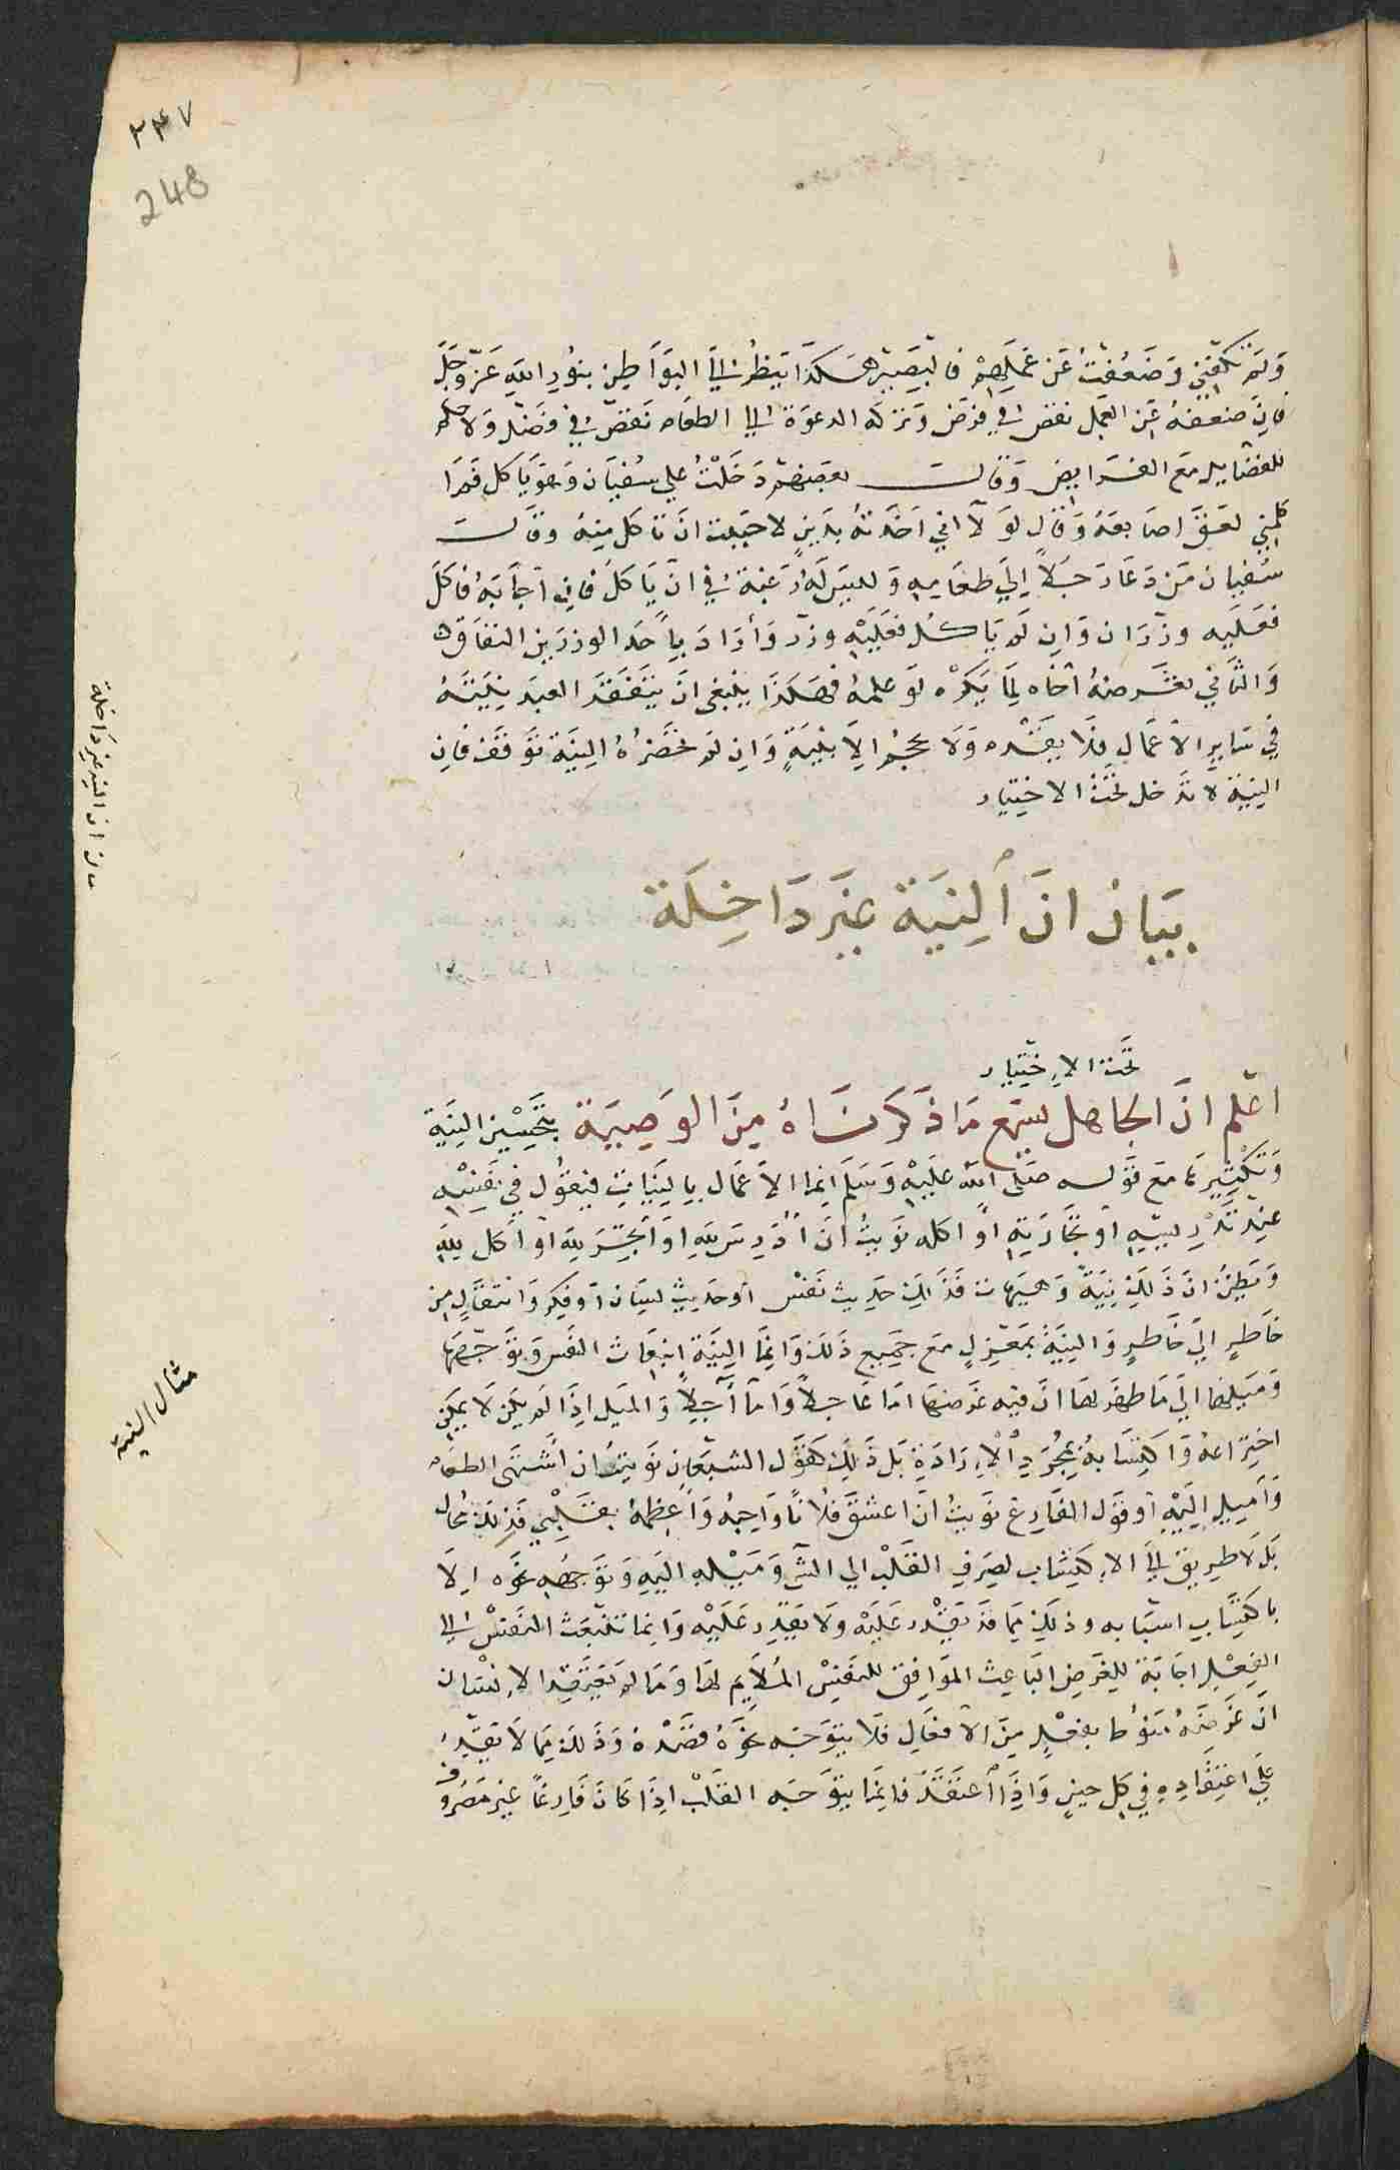 ٢٤٧
248
وَلَمْ تَكْفِنِي وَضَعُفْتُ عَنْ عَمَلِهِمْ فالبَصِير هَكَذَا يَنظُر اليَ البَوَاطِنِ بِنُورِ اللهِ عَزّ وَجَلَّ
فانَ ضعفهُ عَن العَمَل نقص في فرض وَترَكه الدعوَة الي الطعَام نَقص في فضل وَلاحكم
للفضايل مَع الفرَايض وَقالَ بعضهم دَخَلْتُ علي سُفيَان وَهوَ يَاكل فَمَا
كلمني لعَقَ اصَابعَهُ وَقال لوَلا اني اخَذتهُ بِدَينٍ لاحبَبت انَ تاكل مِنهُ وقالَ
سُفيان مَن دَعَا رَجُلاً اليَ طعَامِهِ وَلَيسَ لَهُ رَغبَة في انَ يَاكلَ فان اجَابَهُ فاكلَ
فعَلَيه وزرَان وَان لَم يَاكل فعَلَيْهِ وزر وَأرَادَ بِأحَد الوزرَين النفَاق
وَالثاني تعَرضهُ اخاه لِمَا يَكرَه لَو علمهُ فهَكَذَا ينبَغي انَ يتفَقدَ العبد نِيَّتهُ
في سَاير الاعمَال فلا يقدم وَلا يحجم الاَ بنيَةٍ وَان لَم تحضرهُ النيَة توَقفَ فان
النيَة لا تدخل تحت الاختيار
بيَان انَ النِيَة غيَر دَاخِلَة
تحَت الاِختيار
اعْلم انَ الجاهل يسمَع مَا ذكَرنَاهُ مِنَ الوَصِيَة بتحَسْين النيَة
وَتكْثِيرهَا مَع قوَله صَلى اللهُ عَلَيْهِ وَسَلَم انما الاعمَال بالنِيَات فيَقوُل في نَفسِه
عِند تَدْرِيسِهِ اوْ تجَارَتِهِ اوْ اكله نَوَيتُ انَ أدَرِس للهِ اوَ اتجِرَ للهِ اوْ اكل للهِ
وَيَظِنُ انَ ذَلِكَ نِيَةٌ وَهَيهَات فذَلِكَ حَدِيث نَفْس اوْ حَدِيث لسَان اوْ فِكر وَانتقَال مِن
خَاطِرٍ الَي خَاطِرٍ وَالنِيَة بمَعزِلٍ مَع جَميع ذَلكَ وَانمَا النِيَة انبعَاث النفَس وَتوَجّهَا
وَميَلهَا اليَ مَا ظهَرَ لهَا انَ فيه غرَضهَا امَا عَاجِلاً وَامَا آجِلاً وَالميَل اذَا لَم يَكن لا يمكن
اخترَاعهُ وَاكتسَابهُ بمُجُرَدِ الاِرَادَةِ بَل ذَلِكَ كقَوْل الشبعَان نوَيتُ ان أشتَهَى الطعَام
وَاميل الَيْهِ اوقوَل الفَارغ نوَيتُ انَ اعشق فلاناً وَاحِبهُ وَاعظِمهُ بقَلْبي فذلكَ محُال
بَل لا طريق اليَ الاِكتسَاب لصَرفِ القَلْب الي الشَي وَمَيْله اليَهِ وَتوَجهه نحَوه الاَ
باكتسَابِ اسْبَابه وذلكَ ممَا قد يَقْدر عَلَيْه وَلا يَقدر عَلَيْه وَانمَا تنبَعث النفْسُ الي
الفِعْل اجَابَة للغرَض البَاعِث الموَافِق للنَفسْ المُلايم لهَا وَمَا لَم يَعتَقِد الاِنسَان
انَ غرَضَهُ مَنوُط بفعْلٍ مِنَ الافعَال فلا يَتوَجَه نحَوَهُ قصَدْهُ وَذَلكَ ممَا لا يَقدِرُ
علَي اعتِقادِهِ فِي كل حينٍ وَاذَا اعتقَدَ فانمَا يَتوَجَه القَلْب اذَا كَانَ فَارِغاً غيَر مَصرُوف
بيان ان النيه غير دَاخلة
مثال النية